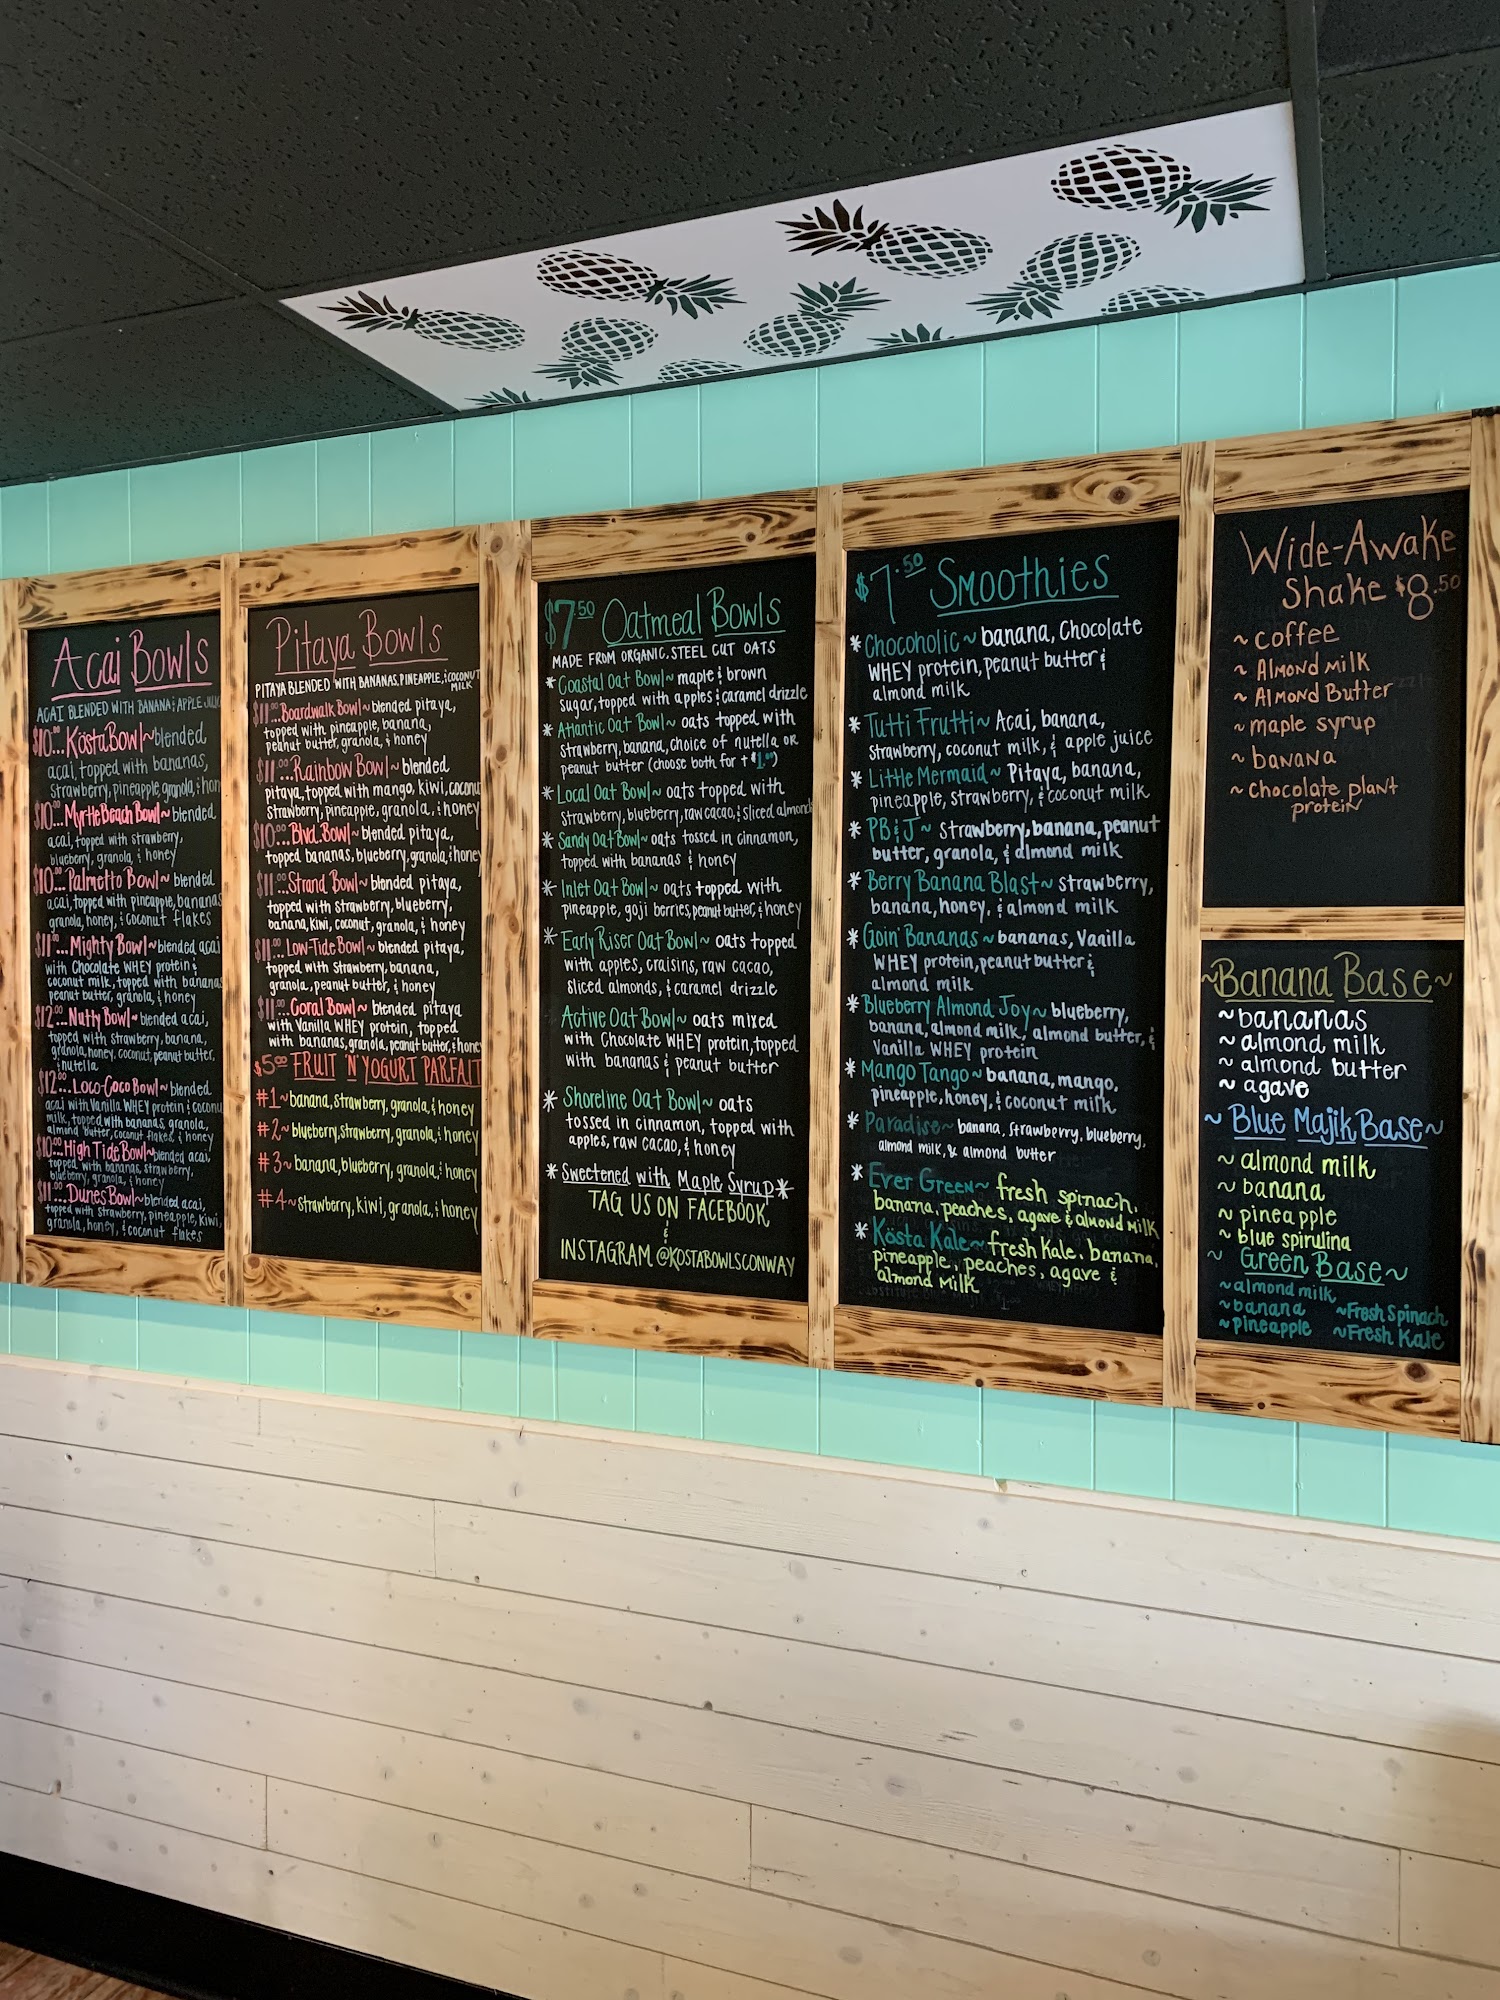 Acai Bowls
ACAI BLENDED WITH BANANA & APPLE JUICE
$10.00...Kösta Bowl~blended
acai, topped with bananas,
strawberry, pineapple, granola, & honey
$10.00...Myrtle Beach Bowl~blended
acai, topped with strawberry,
blueberry, granola, & honey
$10.00...Palmetto Bowl~blended
acai, topped with pineapple, bananas
granola, honey, & coconut flakes
$11.00...Mighty Bowl~blended acai
with Chocolate WHEY protein &
coconut milk, topped with bananas
peanut butter, granola, & honey
$12.00...Nutty Bowl~blended acai,
topped with strawberry, banana,
granola, honey, coconut, peanut butter,
& nutella
$12.00...Loco-Coco Bowl~blended
acai with Vanilla WHEY protein & coconut
milk, topped with bananas, granola,
almond butter, coconut flakes & honey
$10.00...High Tide Bowl~blended acai,
topped with bananas, strawberry,
blueberry, granola, & honey
$11.00...Dunes Bowl~blended acai,
topped with strawberry, pineapple, kiwi,
granola, honey, & coconut flakes
Pitaya Bowls
PITAYA BLENDED WITH BANANAS, PINEAPPLE, & COCONUT
MILK
$11.00...Boardwalk Bowl~ blended pitaya,
topped with pineapple, banana,
peanut butter, granola, & honey
$11.00...Rainbow Bowl~ blended
pitaya, topped with mango, kiwi, coconut
strawberry, pineapple, granola, & honey
$10.00...Blvd. Bowl~ blended pitaya,
topped bananas, blueberry, granola, & honey
$11.00...Strand Bowl~ blended pitaya,
topped with strawberry, blueberry,
banana, kiwi, coconut, granola, & honey
$11.00...Low-Tide Bowl~ blended pitaya,
topped with strawberry, banana,
granola, peanut butter, & honey
$11.00...Coral Bowl~ blended pitaya
with Vanilla WHEY protein, topped
with bananas, granola, peanut butter, & honey
$5.00 FRUIT 'N' YOGURT PARFAIT
#1~banana, strawberry, granola, & honey
#2~ blueberry, strawberry, granola, & honey
#3~ banana, blueberry, granola, & honey
#4~strawberry, kiwi, granola, & honey
$7.50 Oatmeal Bowls
MADE FROM ORGANIC, STEEL CUT OATS
*Coastal Oat Bowl~ maple & brown
sugar, topped with apples & caramel drizzle
* Atlantic Oat Bowl~ oats topped with
strawberry, banana, choice of nutella or
peanut butter (choose both for +$1.00)
* Local Oat Bowl~ oats topped with
strawberry, blueberry, raw cacao, & sliced almonds
* Sandy Oat Bowl~ oats tossed in cinnamon,
topped with bananas & honey
* Inlet Oat Bowl~ oats topped with
pineapple, goji berries, peanut butter, & honey
* Early Riser Oat Bowl~ oats topped
with apples, craisins, raw cacao,
sliced almonds, & caramel drizzle
Active Oat Bowl~ oats mixed
with Chocolate WHEY protein, topped
with bananas & peanut butter
* Shoreline Oat Bowl~ oats
tossed in cinnamon, topped with
apples, raw cacao, & honey
* Sweetened with Maple Syrup*
TAG US ON FACEBOOK
&
INSTAGRAM @KOSTABOWLSCONWAY
$7.50 Smoothies
*Chocoholic~ banana, Chocolate
WHEY protein, peanut butter &
almond milk
*Tutti Frutti~ Acai, banana,
strawberry, coconut milk, & apple juice
*Little Mermaid~ Pitaya, banana,
pineapple, strawberry, & coconut milk
*PB&J~ strawberry, banana, peanut
butter, granola, & almond milk
*Berry Banana Blast~ strawberry,
banana, honey, & almond milk
*Goin' Bananas~ bananas, Vanilla
WHEY protein, peanut butter &
almond milk
*Blueberry Almond Joy~ blueberry,
banana, almond milk, almond butter, &
Vanilla WHEY protein
*Mango Tango~ banana, mango,
pineapple, honey, & coconut milk
* Paradise~ banana, strawberry, blueberry,
almond milk, & almond butter
* Ever Green~ fresh spinach,
banana, peaches, agave & almond milk
* Kösta Kale~ fresh kale, banana,
pineapple, peaches, agave &
almond milk
Wide-Awake
Shake $8.50
~ coffee
~ Almond milk
~ Almond Butter
~ maple syrup
~ banana
~ Chocolate plant
protein
~Banana Base~
~bananas
~ almond milk
~ almond butter
~ agave
~ Blue Majik Base~
~ almond milk
~ banana
~ pineapple
~ blue spirulina
~ Green Base~
~almond milk
~banana ~Fresh Spinach
~pineapple ~Fresh Kale